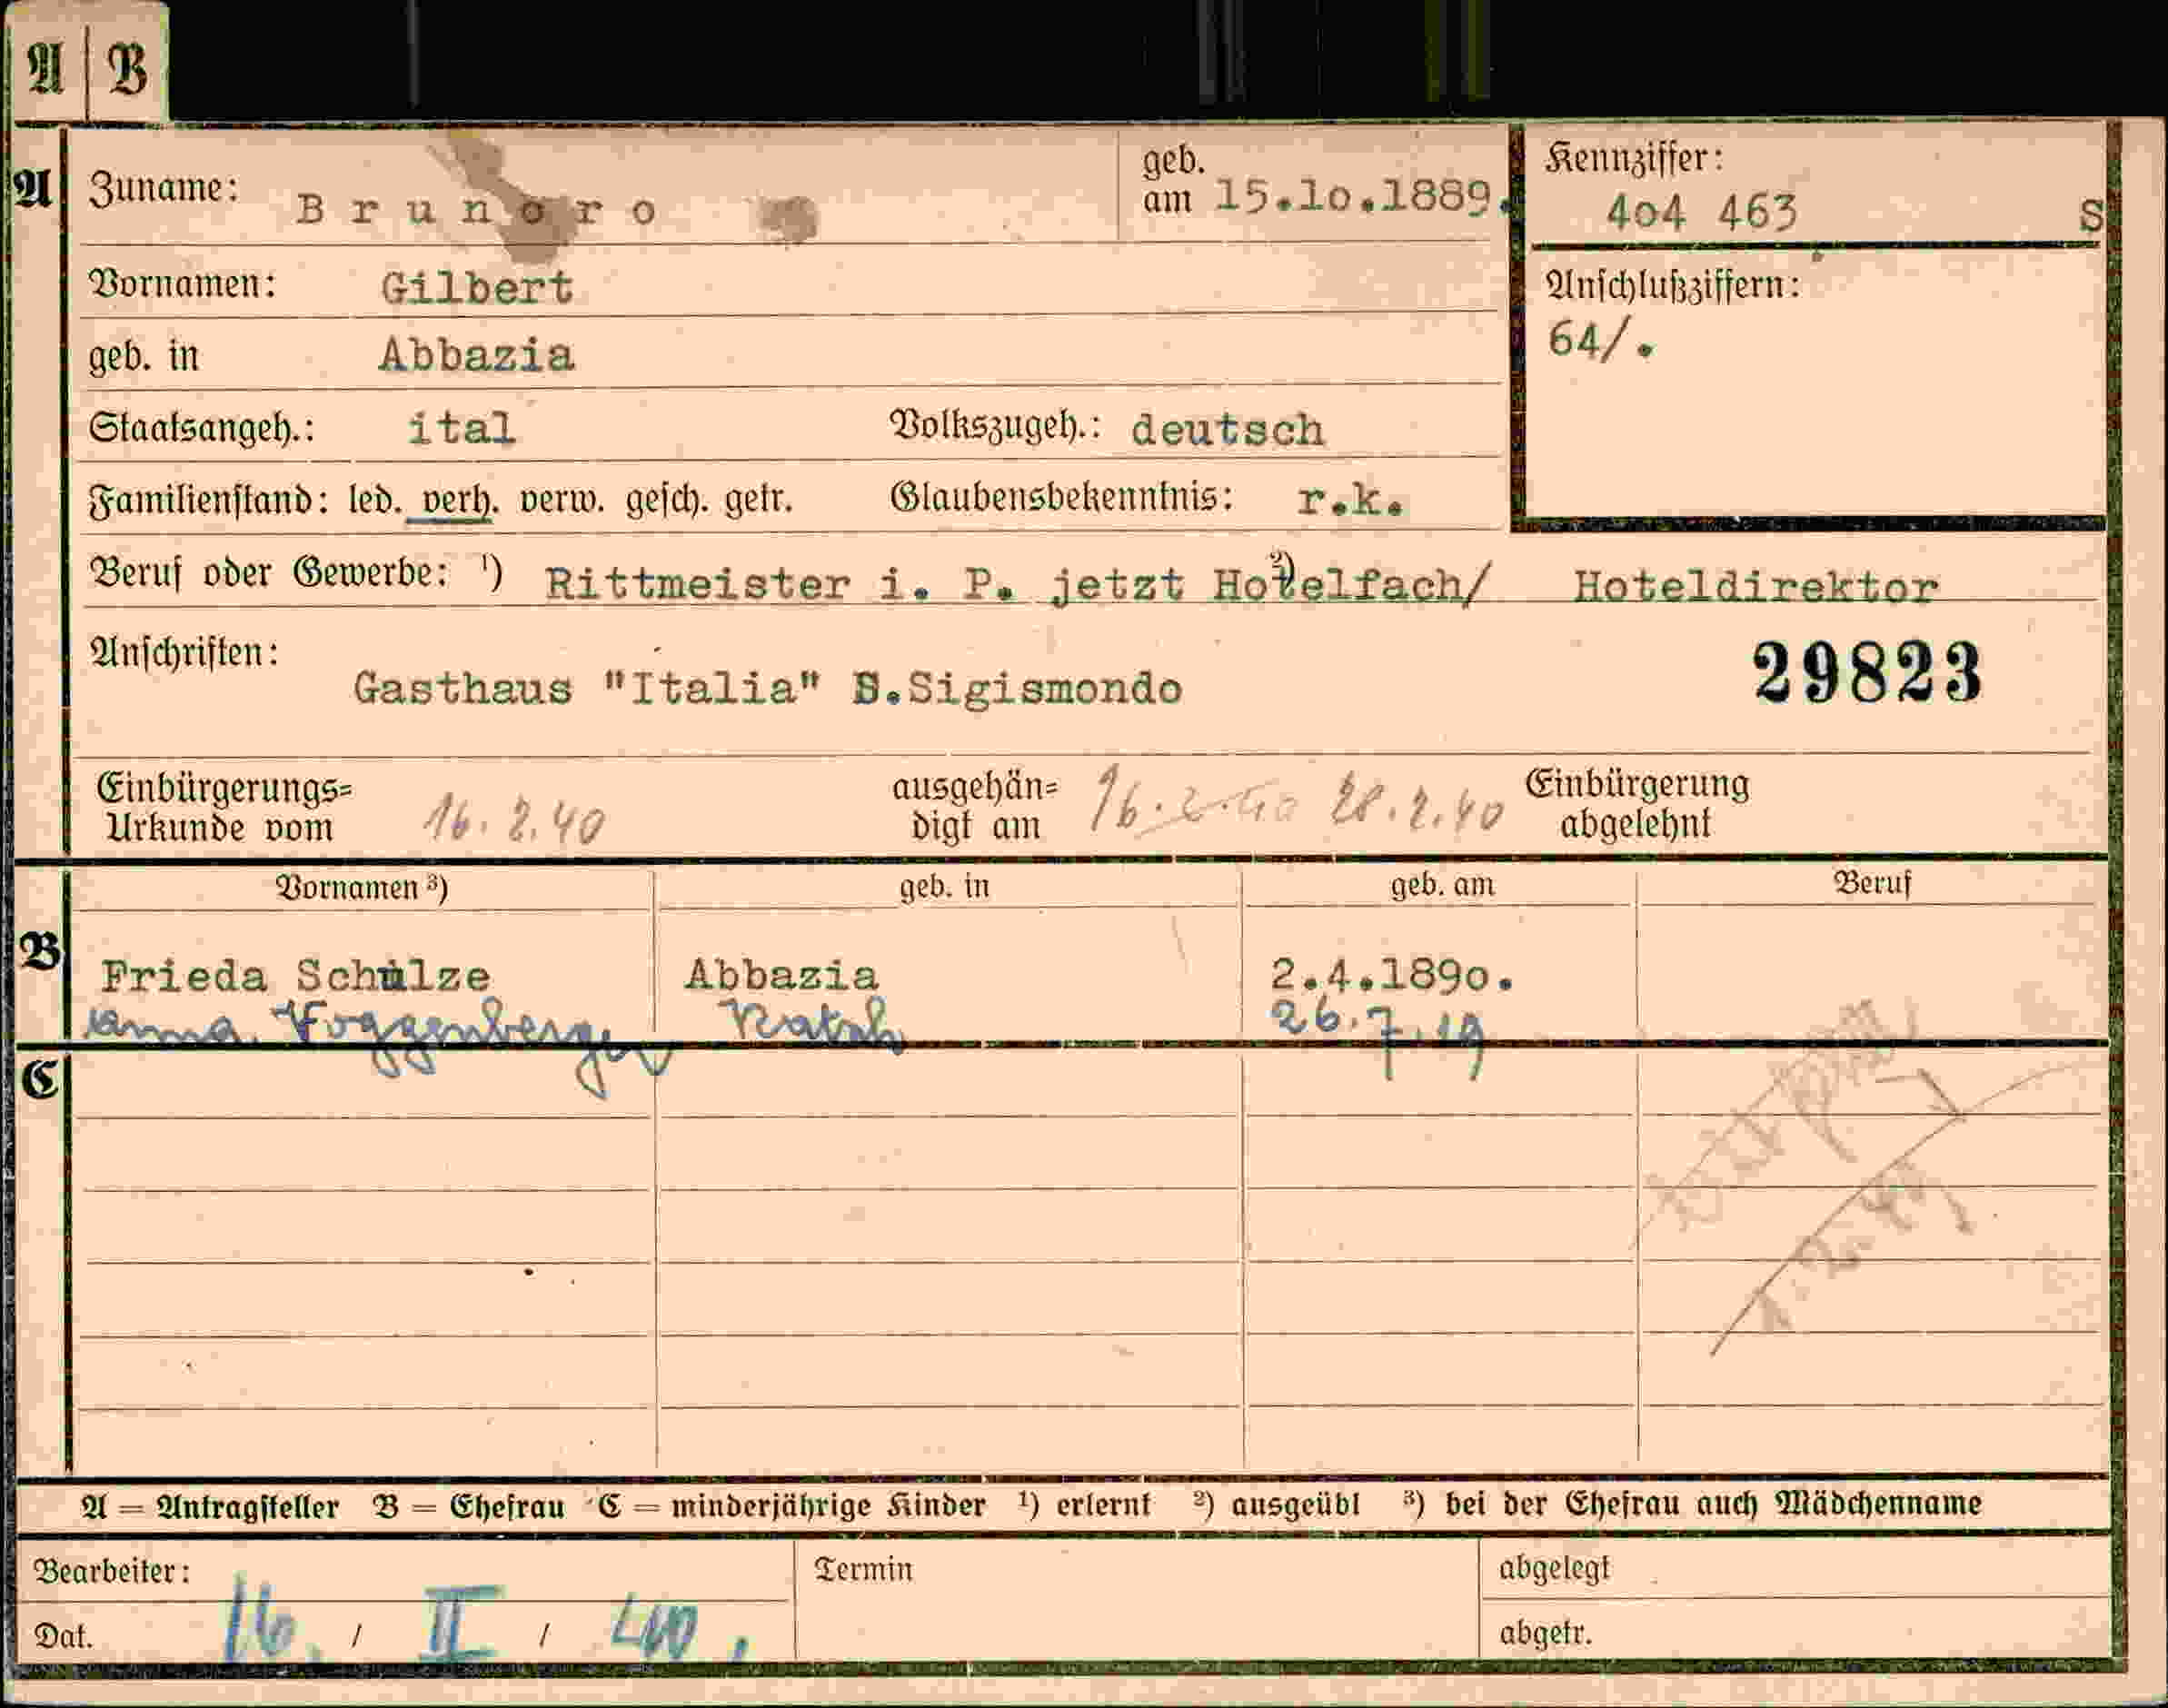 A | B
A
Zuname: Brunoro
geb. am 15.10.1889.
Kennziffer: 404 463 S
Vornamen: Gilbert
Anschlußziffern: 64/.
geb. in Abbazia
Staatsangeh.: ital Volkszugeh.: deutsch
Familienstand: led. verh. verw. gesch. getr. Glaubensbekenntnis: r.k.
Beruf oder Gewerbe: ¹) Rittmeister i. P. jetzt Hotelfach/ ²) Hoteldirektor
Anschriften: Gasthaus "Italia" S.Sigismondo
29823
Einbürgerungs= Urkunde vom 16.2.40 ausgehän= digt am 16.2.40 28.2.40 Einbürgerung abgelehnt
Vornamen ³) geb. in geb. am Beruf
B
Frieda Schulze Abbazia 2.4.1890.
Anna Foggenberger 26.7.19
C
A = Antragsteller B = Ehefrau C = minderjährige Kinder ¹) erlernt ²) ausgeübt ³) bei der Ehefrau auch Mädchenname
Bearbeiter: Termin abgelegt
Dat. 16. / II / 40. abgetr.